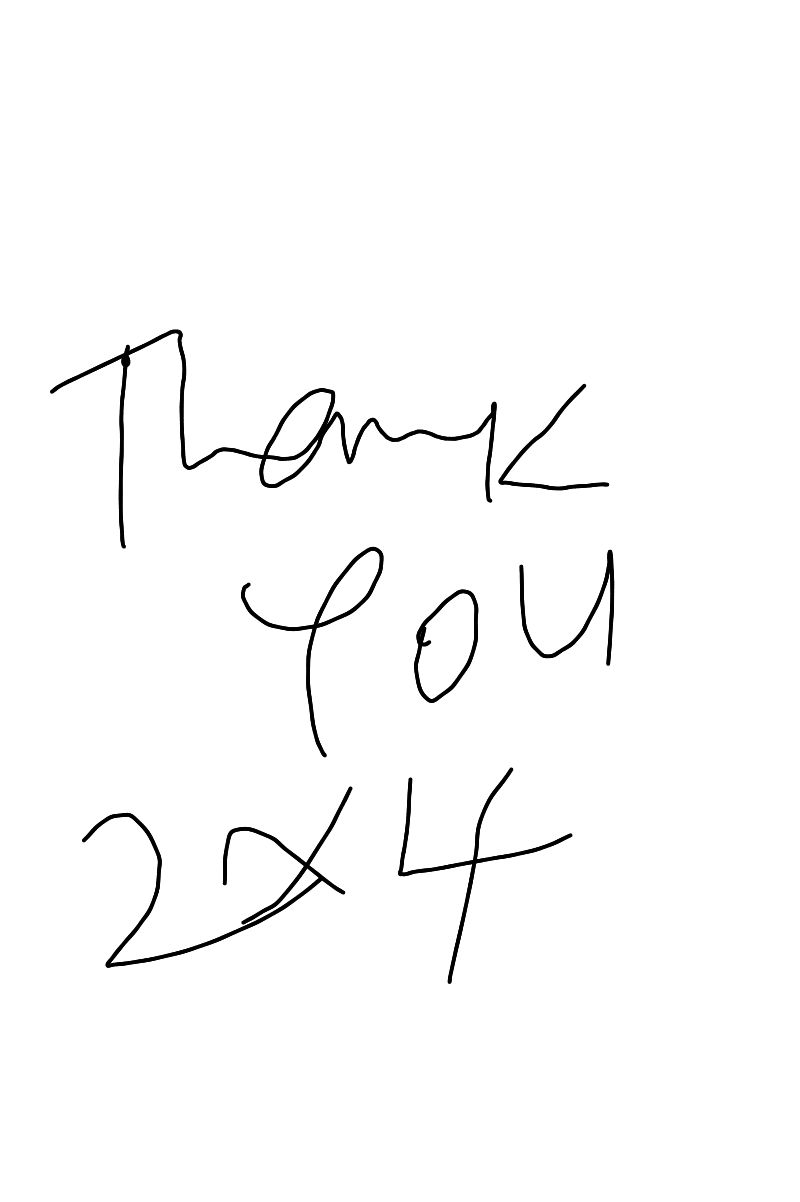 Thank
you
2x4